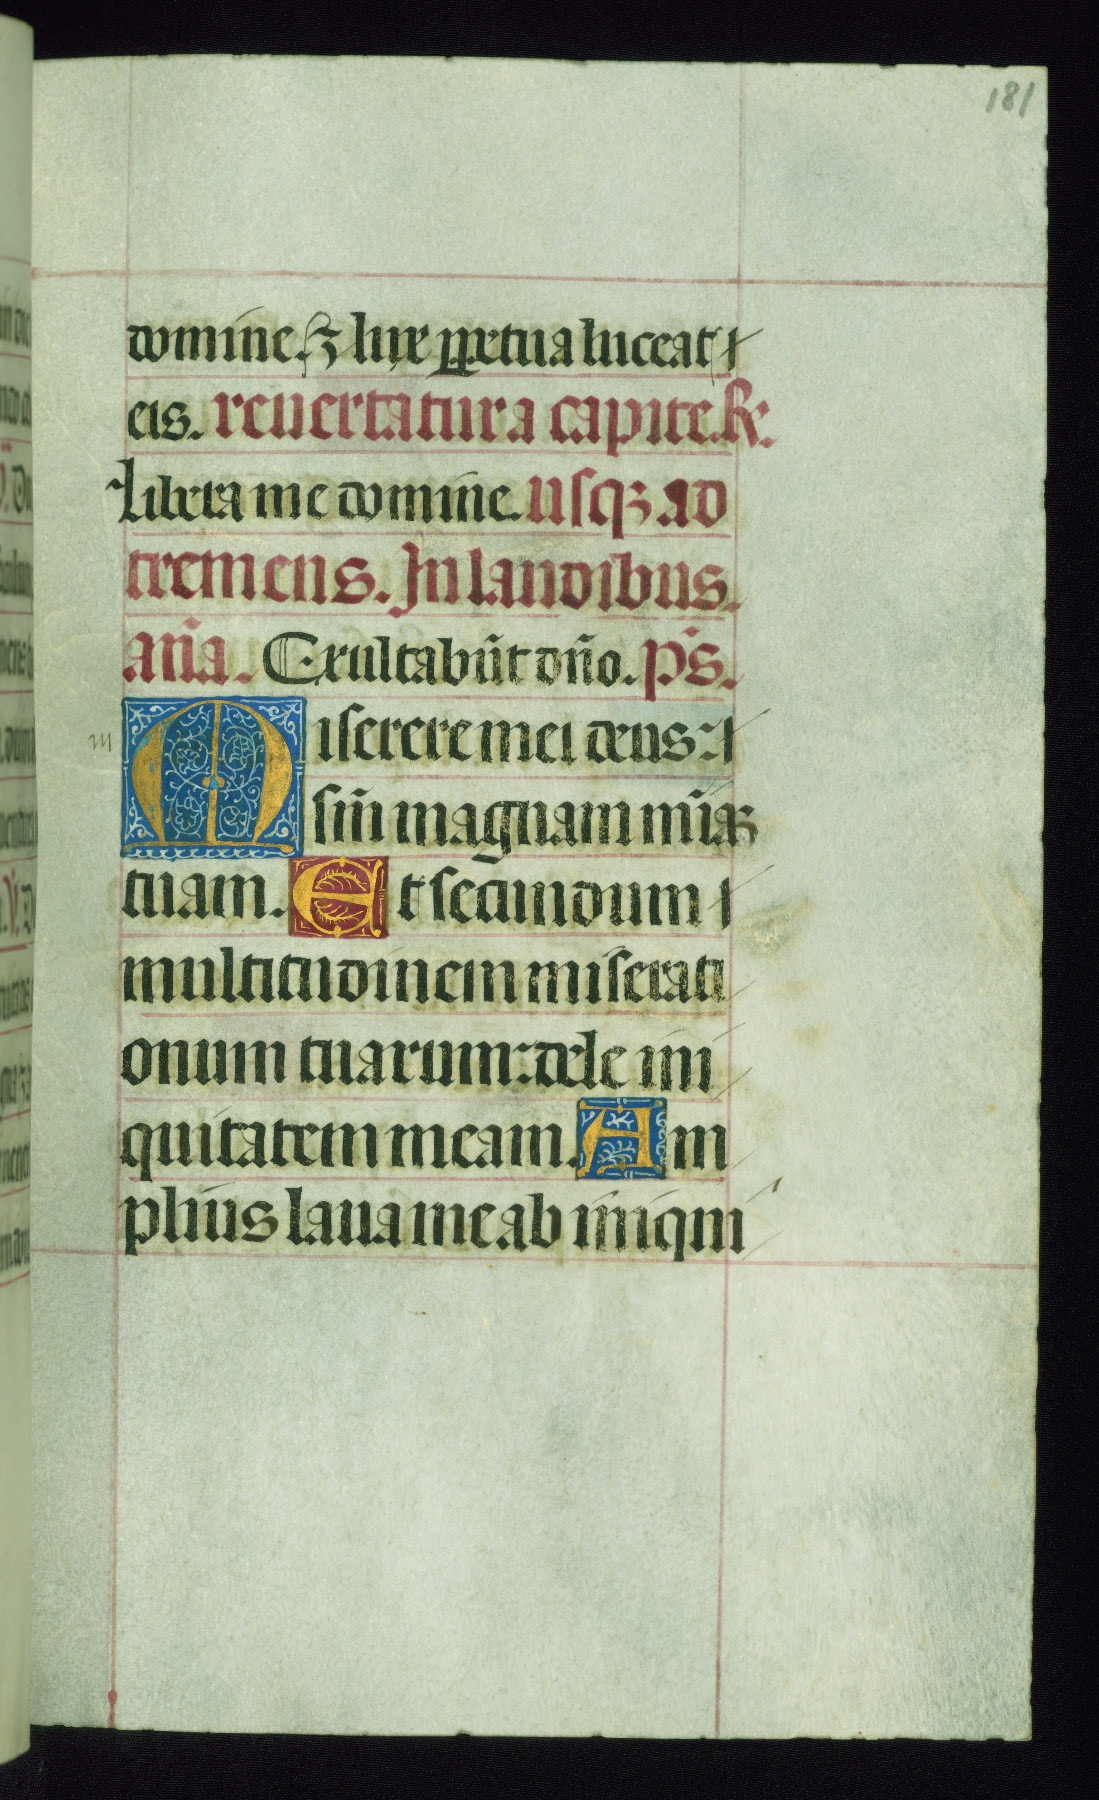 181
domine. ꝫ lux ꝑpetua luceat
eis. revertatur a capite. ℟.
Libera me domine. usqꝫ ad
tremens. In laudibus.
an̄a. Exultabūt dn̄o. ps̄.
Miserere mei deus:
scd̄m magnam mīaꝫ
tuam. Et secundum
multitudinem miserati
onum tuarum: dele ini
quitatem meam. Am
plius lava me ab iniqui